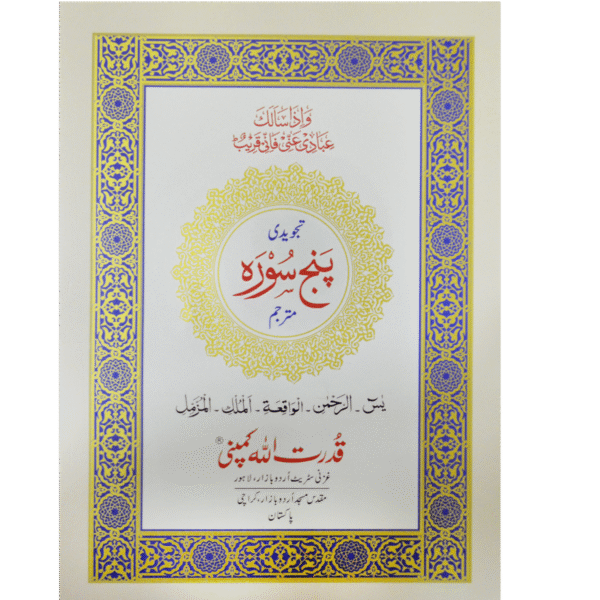 وَاِذَا سَاَلَكَ
عِبَادِیْ عَنِّیْ فَاِنِّیْ قَرِیْبٌ ؕ
تجویدی
پَنج سُوْرَہ
مترجم
یٰسٓ - الرَّحْمٰن - الوَاقِعَة - اَلْمُلْك - اَلْمُزَّمِّل
قُدرت اللہ کمپنی ®
غزنی سٹریٹ اُردو بازار، لاہور
مقدس مسجد اُردو بازار، کراچی
پاکستان